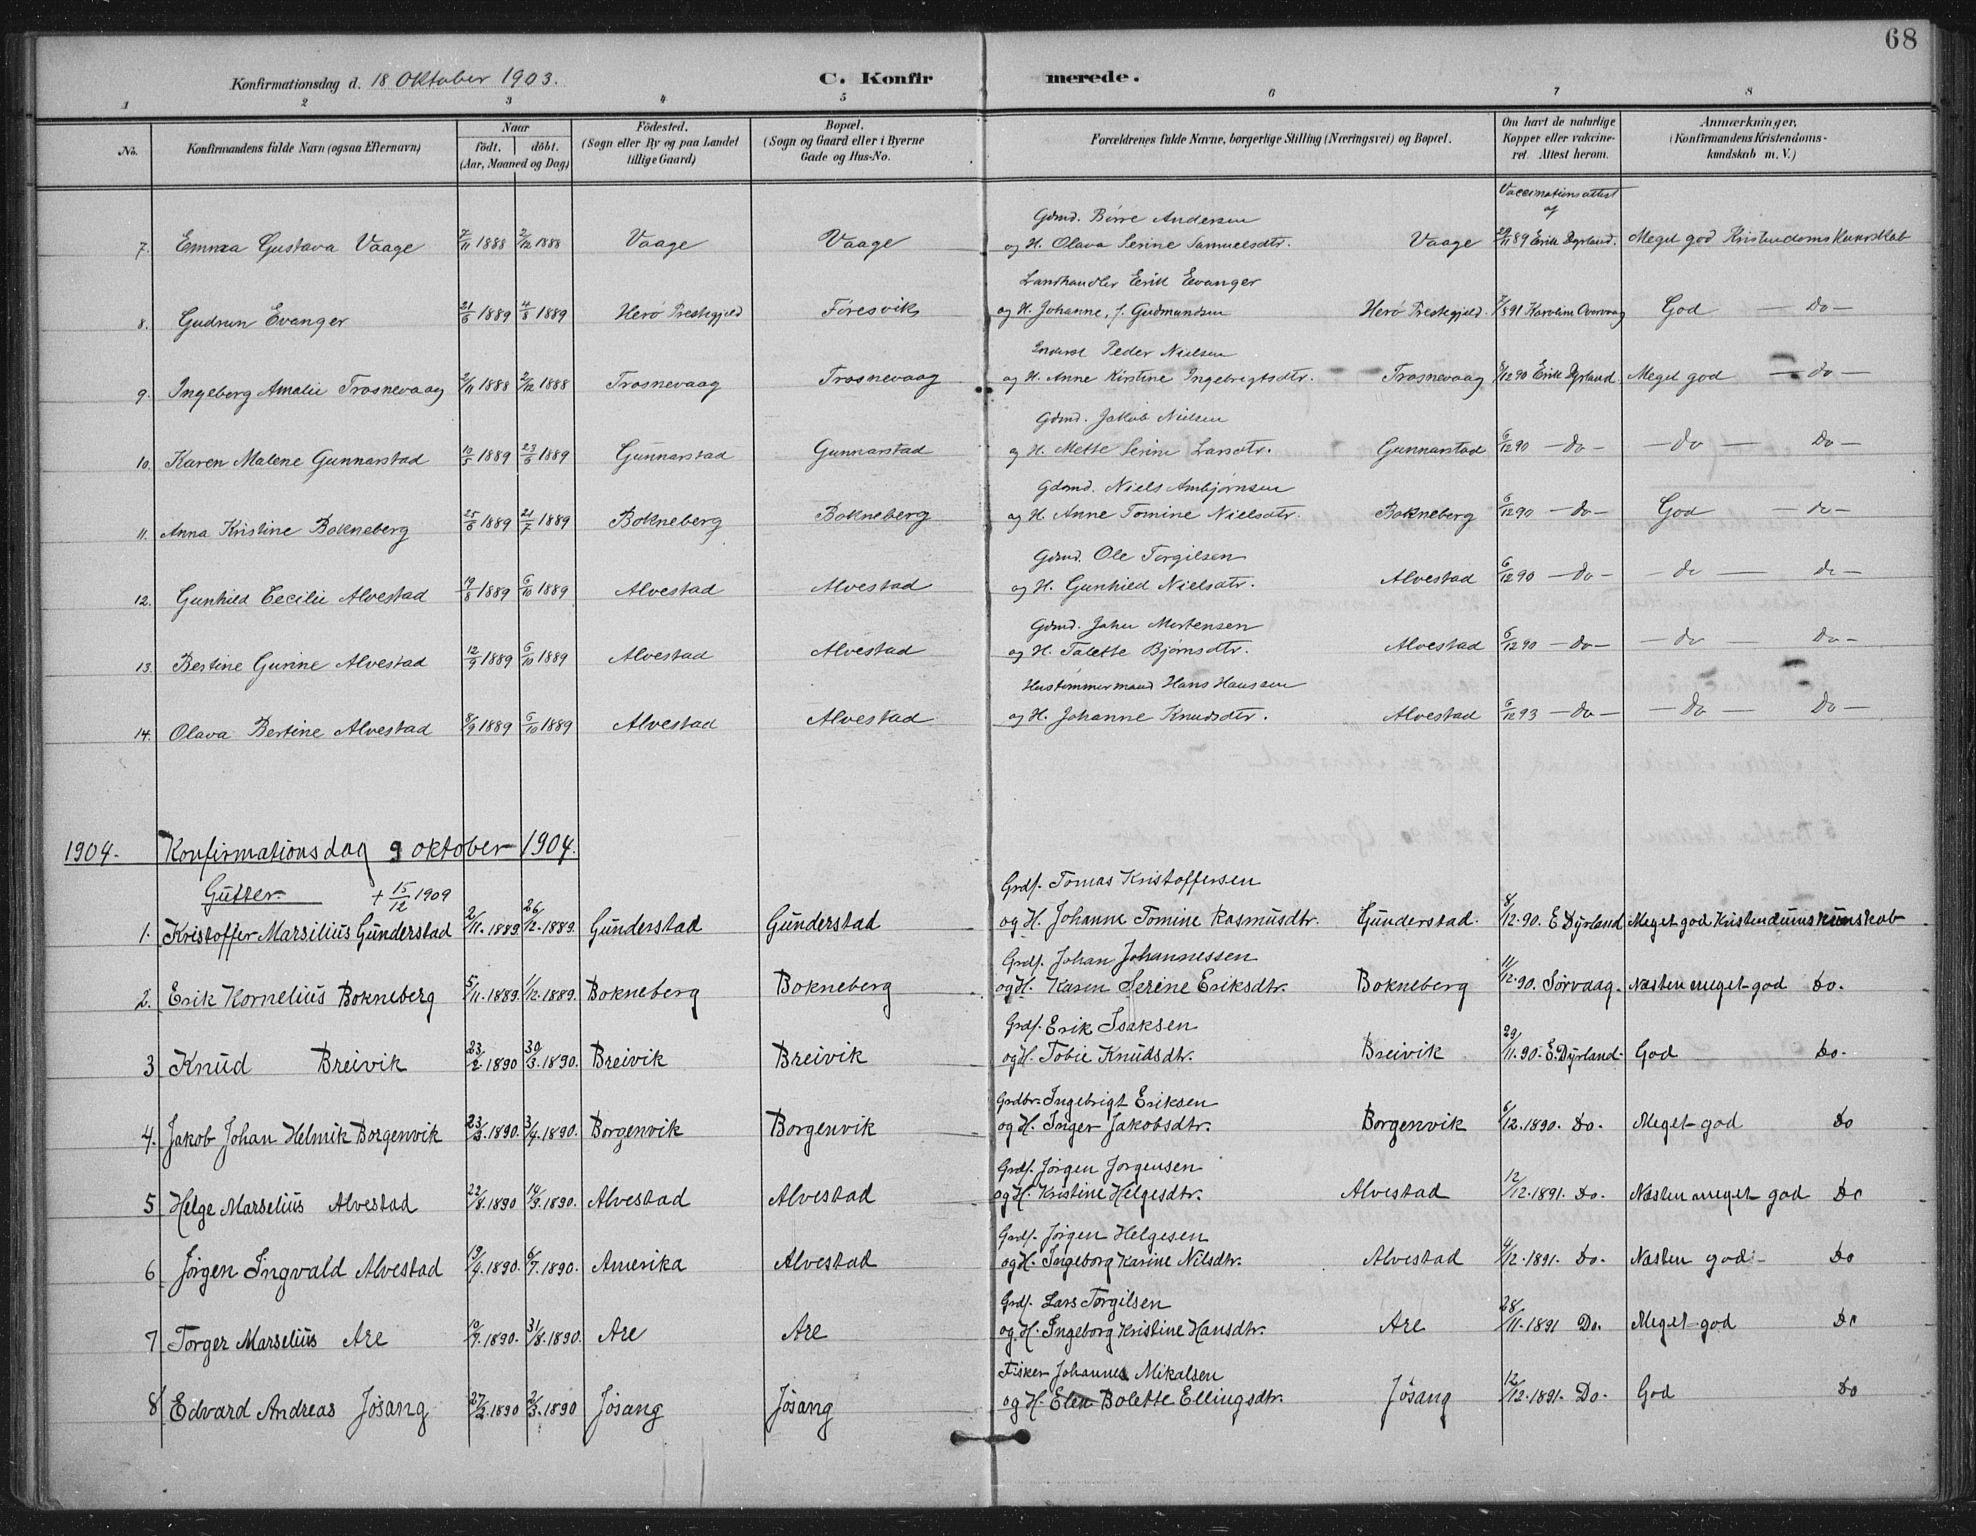 68
Konfirmationsdag d. 18 Oktober 1903. C. Konfirmerede.
1 2 3 4 5 6 7 8
No. Konfirmandens fulde Navn (ogsaa Efternavn) Naar født. døbt. (Aar, Maaned og Dag) Födested. (Sogn eller By og paa Landet tillige Gaard) Bopæl. (Sogn og Gaard eller i Byerne Gade og Hus-No. Forældrenes fulde Navne, borgerlige Stilling (Næringsvei) og Bopæl. Om havt de naturlige Kopper eller vakcineret. Attest herom. Anmærkninger, (Konfirmandens Kristendomskundskab m. V.)
Vaccinationsattest af
Gdmd. Børre Andersen
7. Emma Gustava Vaage 7/11 1888 2/12 1888 Vaage Vaage og H. Olava Serine Samuelsdtr. Vaage 29/11 89 Erik Dyrland. Meget god Kristendomskundskab
Landhandler Erik Evanger
8. Gudrun Evanger 21/6 1889 4/8 1889 Herø Prestegjeld Føresvik og H. Johanne, f. Gudmundsen Herø Prestegjeld. 7/8 91 Karoline God — Do —
Peder Nielsen
9. Ingeborg Amalie Trosnevaag 2/11 1888 2/12 1888 Trosnevaag Trosnevaag og H. Anne Kirstine Ingebrigtsdtr. Trosnevaag 6/12 90 Erik Dyrland. Meget god — do —
Gdmd. Jakob Nielsen
10. Karen Malene Gunnarstad 10/5 1889 23/6 1889 Gunnarstad Gunnarstad og H. Mette Serine Larsdtr. Gunnarstad 6/12 90 — do — — do — Do —
Gdmd. Niels Ambjørnsen
11. Anna Kristine Bokneberg 25/6 1889 21/7 1889 Bokneberg Bokneberg og H. Anne Tomine Nielsdtr. Bokneberg 6/12 90 — do — God — do —
Gdmd. Ole Torgilsen
12. Gunhild Cecilie Alvestad 19/8 1889 6/10 1889 Alvestad Alvestad og H. Gunhild Nielsdtr. Alvestad 6/12 90 — do — — do — do —
Gdmd. John Mortensen
13. Bertine Gurine Alvestad 12/9 1889 6/10 1889 Alvestad Alvestad og H. Talette Bjørnsdtr. Alvestad 6/12 90 — do — — do — Do —
Hustømmermand Hans Hanssen
14. Olava Bertine Alvestad 8/9 1889 6/10 1889 Alvestad Alvestad og H. Johanne Knudsdtr. Alvestad 6/12 93 — do — — Do — Do —
1904. Konfirmationsdag 9 oktober 1904.
Gutter. + 15/12 1909 Grdf. Tomas Kristoffersen
1. Kristoffer Marsilius Gunderstad 2/11. 1889 26/12. 1889. Gunderstad Gunderstad og H. Johanne Tomine Rasmusdtr. Gunderstad. 8/12. 90. E Dyrland Meget god Kristendumskunskab
Grdf. Johan Johannessen
2. Erik Kornelius Bokneberg 5/11. 1889. 1/12. 1889. Bokneberg Bokneberg og H. Karen Serine Eriksdtr. Bokneberg 11/12. 90. Sørvaag. Næsten meget god Do.
Grdf. Erik Isaksen
3 Knud Breivik 23/2. 1890 30/3. 1890. Breivik Breivik og H. Tobie Knudsdtr. Breivik 29/11. 90. E. Dyrland. God Do.
Grdbr. Ingebrigt Eriksen
4. Jakob Johan Helmik Borgenvik 23/3. 1890. 3/4. 1890. Borgenvik Borgenvik og H. Inger Jakobsdtr. Borgenvik 6/12. 1890. Do. Meget god Do
Grdf. Jørgen Jorgensen
5 Helge Marselius Alvestad 22/8. 1890 14/9. 1890. Alvestad Alvestad og H. Kristine Helgesdtr. Alvestad 12/12. 1891. Do. Næsten meget god Do
Grdf. Jørgen Helgesen
6 Jørgen Ingvald Alvestad 19/4. 1890. 6/7. 1890. Amerika Alvestad og H. Ingeborg Karine Nilsdtr. Alvestad 4/12. 1891. Do. Næsten god Do
Grdf. Lars Torgilsen
7 Torger Marselius Are 10/7. 1890. 31/8. 1890. Are Are og H. Ingeborg Kristine Hansdtr. Are 28/11. 1891 Do. Meget god Do
Fisker Johannes Mikalsen
8 Edvard Andreas Jösang 27/2. 1890 2/3. 1890 Jösang Jösang og H. Elen Bolette Ellingsdtr. Jösang 12/12. 1891. Do. God Do